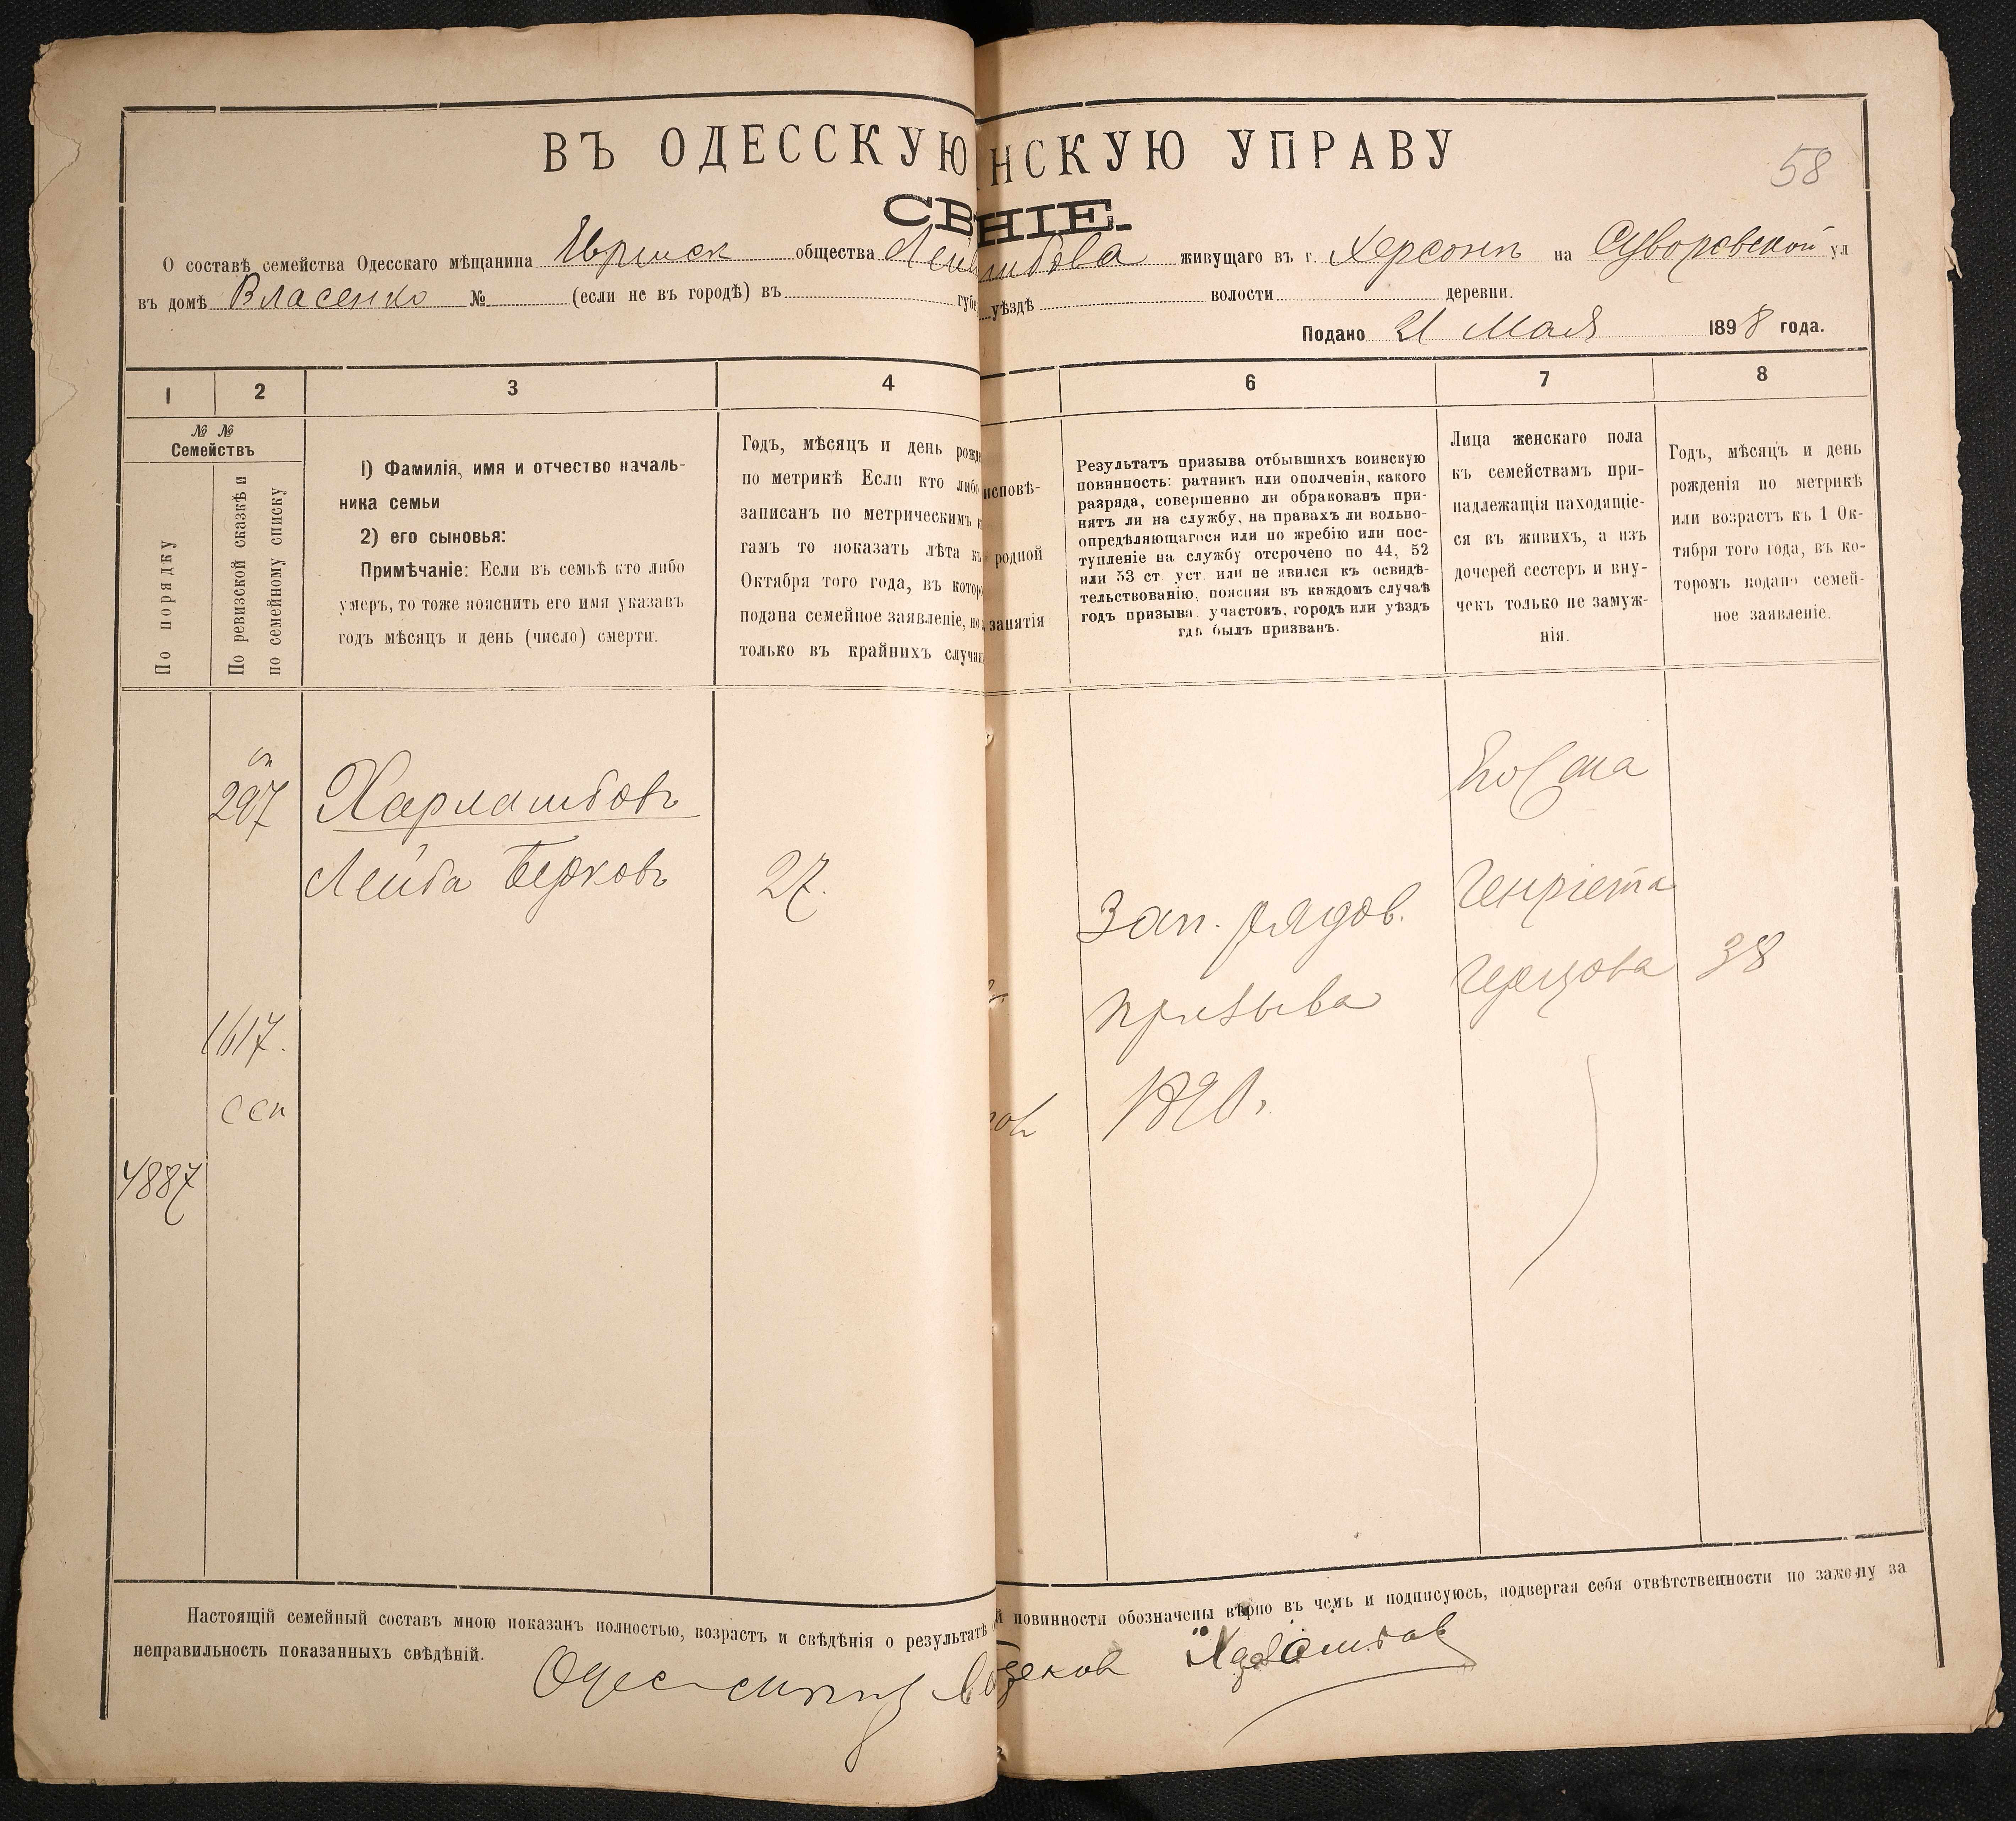 ВЪ ОДЕССКУЮ НСКУЮ УПРАВУ
58
СВ НІЕ.
О составѣ семейства Одесскаго мѣщанина Еврейск общества Лей шбова живущаго въ г. Херсонѣ на Суворовской ул
въ домѣ Власенко № (если не въ городѣ) въ губе уѣздѣ волости деревни.
Подано 21 Мая 1898 года.
1 2 3 4 6 7 8
№ №
Семействъ
По порядку
По ревизской сказкѣ и
по семейному списку
1) Фамилія, имя и отчество началь-
ника семьи
2) его сыновья:
Примѣчаніе: Если въ семьѣ кто либо
умеръ, то тоже пояснить его имя указавъ
годъ мѣсяцъ и день (число) смерти.
Годъ, мѣсяцъ и день рожде
по метрикѣ Если кто либо
записанъ по метрическимъ к
гамъ то показать лѣта къ
Октября того года, въ котор
подана семейное заявленіе, но
только въ крайнихъ случая
исповѣ-
родной
занятія
Результатъ призыва отбывшихъ воинскую
повинность: ратникъ или ополченія, какого
разряда, совершенно ли обракованъ при-
нятъ ли на службу, на правахъ ли вольно-
опредѣляющагося или по жребію или пос-
тупленіе на службу отсрочено по 44, 52
или 53 ст уст. или не явился къ освидѣ-
тельствованію, поясняя въ каждомъ случаѣ
годъ призыва, участокъ, городъ или уѣздъ
гдѣ былъ призванъ.
Лица женскаго пола
къ семействамъ при-
надлежащія находящіе-
ся въ живихъ, а изъ
дочерей сестеръ и вну-
чекъ только не замуж-
нія.
Годъ, мѣсяцъ и день
рожденія по метрикѣ
или возрастъ къ 1 Ок-
тября того года, въ ко-
торомъ подано семей-
ное заявленіе.
сп
297 Харлашбовъ
Лейба Берковъ 27.
Зап. рядов.
призыва
1891.
Генріета
Герцова 38
1617.
ссп
4887
Настоящій семейный составъ мною показанъ полностью, возрастъ и свѣдѣнія о результатѣ й повинности обозначены вѣрно въ чемъ и подписуюсь, подвергая себя отвѣтственности по закону за
неправильность показанныхъ свѣдѣній.